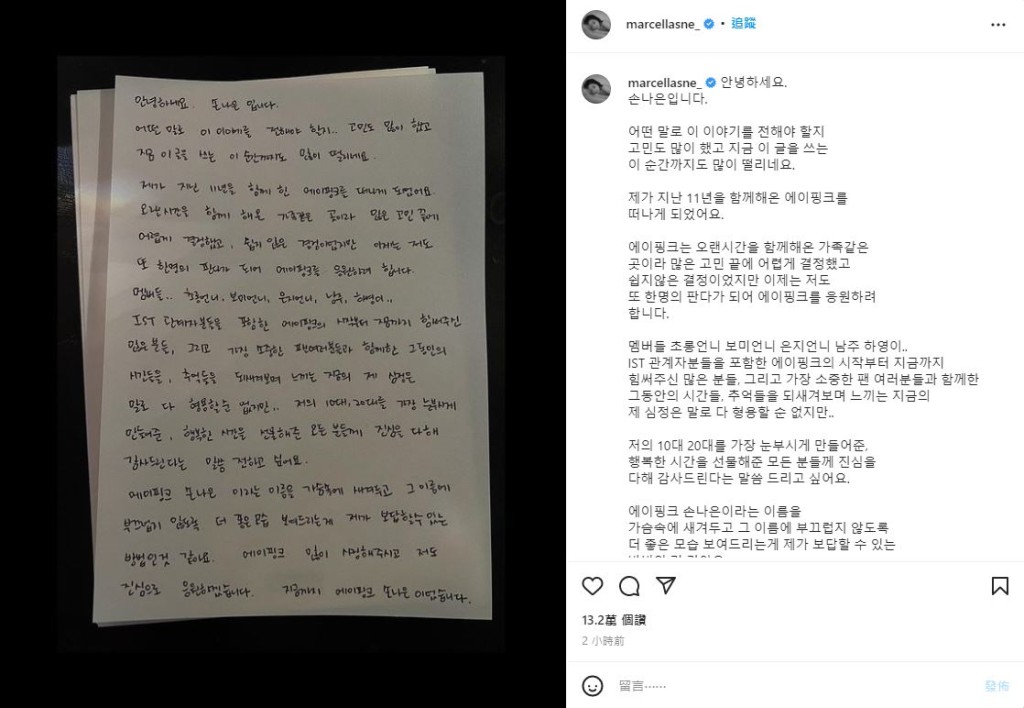 안녕하세요. 손나은 입니다.
어떤 말로 이 이야기를 전해야 할지.. 고민도 많이 했고
지금 이 글을 쓰는 이 순간까지도 많이 떨리네요.
제가 지난 11년을 함께 한 에이핑크를 떠나게 되었어요.
오랜시간을 함께 해온 가족같은 곳이라 많은 고민 끝에
어렵게 결정했고, 쉽지 않은 결정이었지만 이제는 저도
또 한명의 판다가 되어 에이핑크를 응원하려 합니다.
멤버들.. 초롱언니, 보미언니, 은지언니, 남주, 하영이..
IST 관계자분들을 포함한 에이핑크의 시작부터 지금까지 힘써주신
많은 분들, 그리고 가장 소중한 팬여러분들과 함께한 그동안의
시간들을, 추억들을 되새겨보며 느끼는 지금의 제 심정을
말로 다 형용할순 없지만.. 저의 10대, 20대를 가장 눈부시게
만들어준, 행복한 시간을 선물해준 모든 분들께 진심을 다해
감사드린다는 말씀 전하고 싶어요.
에이핑크 손나은 이라는 이름을 가슴속에 새겨두고 그 이름에
부끄럽지 않도록 더 좋은모습 보여드리는게 제가 보답할수 있는
방법인것 같아요. 에이핑크 많이 사랑해주시고 저도
진심으로 응원하겠습니다. 지금까지 에이핑크 손나은 이었습니다.
marcellasne_ • 追蹤
marcellasne_ 안녕하세요.
손나은입니다.
어떤 말로 이 이야기를 전해야 할지
고민도 많이 했고 지금 이 글을 쓰는
이 순간까지도 많이 떨리네요.
제가 지난 11년을 함께해온 에이핑크를
떠나게 되었어요.
에이핑크는 오랜시간을 함께해온 가족같은
곳이라 많은 고민 끝에 어렵게 결정했고
쉽지않은 결정이었지만 이제는 저도
또 한명의 판다가 되어 에이핑크를 응원하려
합니다.
멤버들 초롱언니 보미언니 은지언니 남주 하영이..
IST 관계자분들을 포함한 에이핑크의 시작부터 지금까지
힘써주신 많은 분들, 그리고 가장 소중한 팬 여러분들과 함께한
그동안의 시간들, 추억들을 되새겨보며 느끼는 지금의
제 심정은 말로 다 형용할 순 없지만..
저의 10대 20대를 가장 눈부시게 만들어준,
행복한 시간을 선물해준 모든 분들께 진심을
다해 감사드린다는 말씀 드리고 싶어요.
에이핑크 손나은이라는 이름을
가슴속에 새겨두고 그 이름에 부끄럽지 않도록
더 좋은 모습 보여드리는게 제가 보답할 수 있는
13.2萬 個讚
2 小時前
留言……
發佈